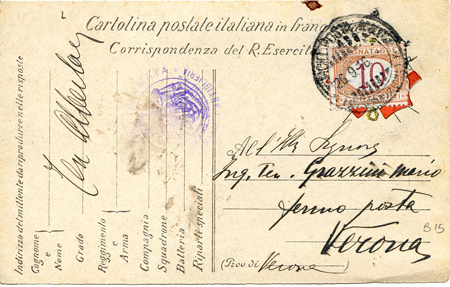 Cartolina postale italiana in franc
Corrispondenza del R. Esercit
SEGNATAS
10
Indirizzo del mittente da riprodurre nelle risposte
Cognome e Nome
Grado
Reggimento e Arma
Compagnia
Squadrone
Batteria
Riparti speciali
Ten
All'Ill Signor
Ing. Ten. Grazzini Mario
fermo posta
Verona
(Prov. di Verona
B15